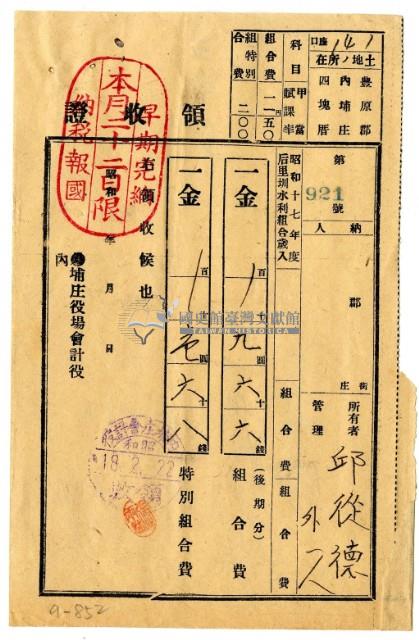 口座 141
土地ノ所在
豐原郡
內埔庄
四塊厝
科目
甲當賦課率
組合費 一一五〇
組合特別費 二〇〇
領收證
早期完納
本月二十二日限
納稅報國
第921號
納人
郡
街庄
所有者
管理
邱從德
外 人
昭和十七年度
后里圳水利組合歲入
組合費
組合費
一金
百
十
九圓
六十
六錢
組合費
(後期分)
一金
百
十
圓
六十
八錢
特別組合費
右領收候也
昭和 年 月 日
內埔庄役場會計役
18.2.22
國史館臺灣文獻館
TAIWAN HISTORICA
9-852